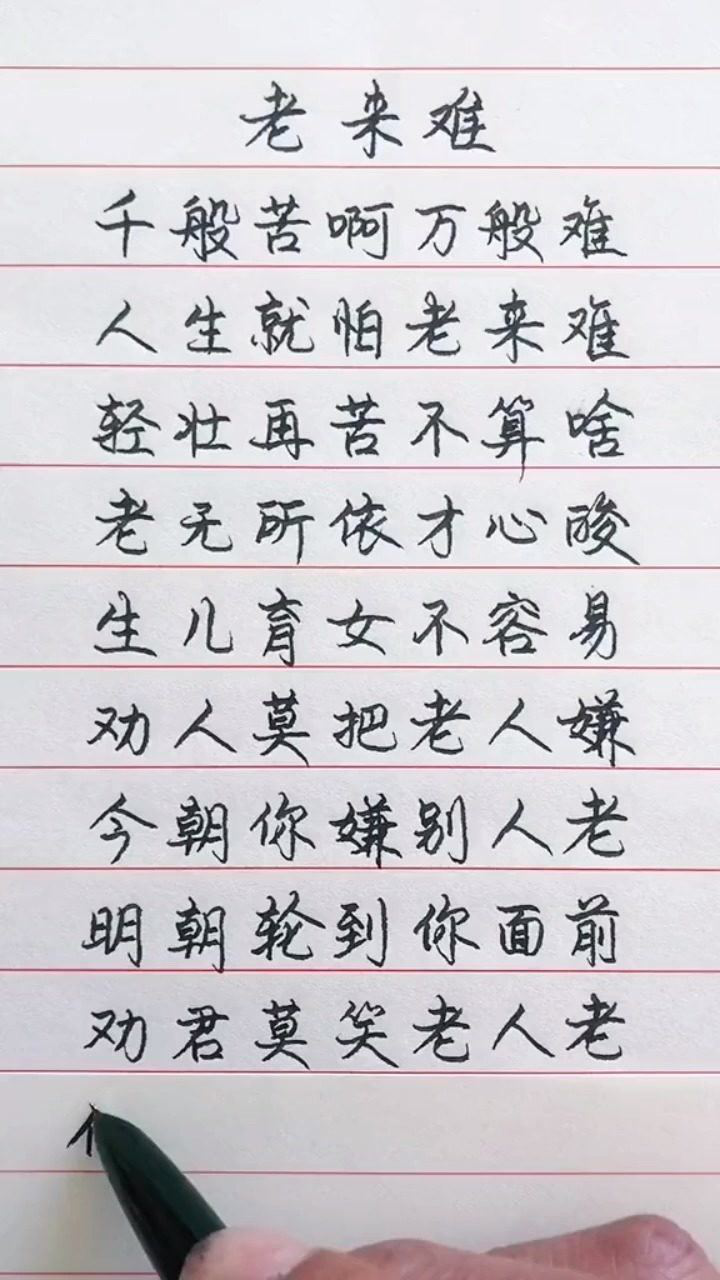 老来难
千般苦啊万般难
人生就怕老来难
轻壮再苦不算啥
老无所依才心酸
生儿育女不容易
劝人莫把老人嫌
今朝你嫌别人老
明朝轮到你面前
劝君莫笑老人老